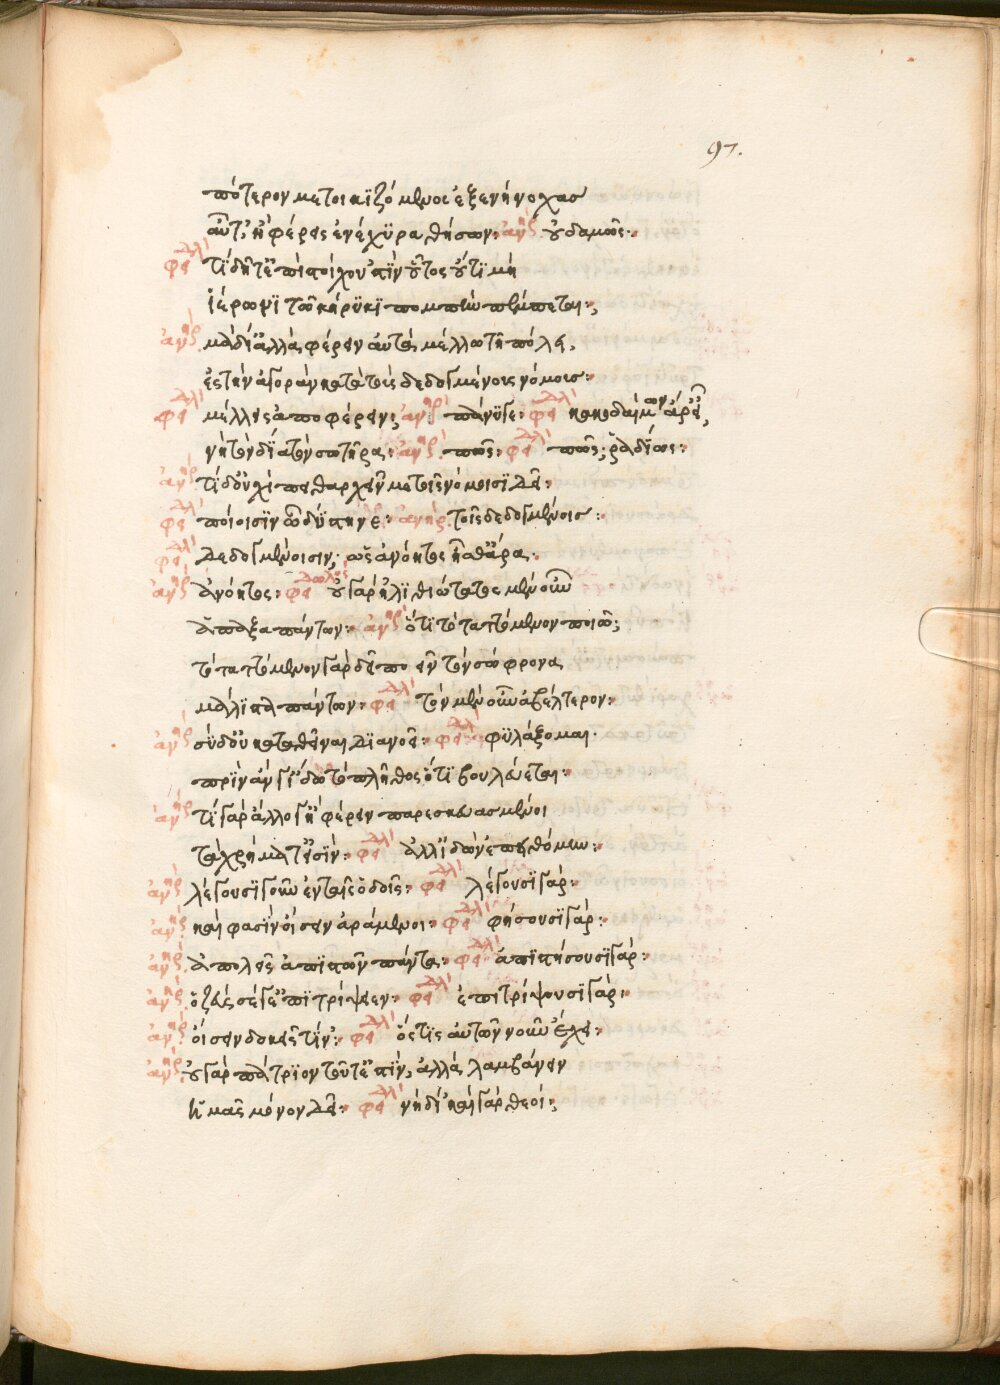 97.
πότερον μετοικϊζόμενος ἐξενήνοχας
αὔτ', ἢ φέρεις ἐνέχϋρα θήσων: ἀνὴρ οὐδαμῶς:
φει τί δῆτ' ἐπὶ στοίχου 'στὶν οὕτως οὔτι μὴ
ἱέρωνϊ τῶ κήρϋκϊ πομπὴν πέμπεται:
ἀνὴρ μὰ δί' ἀλλὰ φέρειν αὐτὰ μέλλω τῆ πόλει,
ἐς τὴν ἀγορὰν κατὰ τοὺς δεδογμένους νόμους:
φει μέλλεις ἀποφέρειν; ἀνὴρ πάνϋγε: φει κακοδαίμων ἄρ' εἶ,
νὴ τὸν δία τὸν σωτῆρα: ἀνὴρ πῶς: φει πῶς; ῥαδίως:
ἀνὴρ τί δ' οὐχὶ πειθαρχεῖν με τοῖς νόμοισϊ δεῖ:
φει ποίοισϊν ὦ δύστηνε: ἀνὴρ τοῖς δεδογμένοις:
φει δεδογμένοισιν; ὡς ἀνόητος ἦσθ' ἄρα:
ἀνὴρ ἀνόητος: φει οὐ γὰρ ἠλϊθιώτατος μὲν οὖν
ἁπαξαπάντων: ἀνὴρ ὅτϊ τὸ ταττόμενον ποιῶ;
τὸ ταττόμενον γὰρ δεῖ ποεῖν τὸν σώφρονα
μάλϊστα πάντων: φει τὸν μὲν οὖν ἀβέλτερον:
ἀνὴρ σὺ δ' οὐ καταθεῖναι δϊανοεῖ: φει φϋλάξομαι.
πρὶν ἄν γ' ἴδω τὸ πλῆθος ὅτϊ βουλεύεται:
ἀνὴρ τί γὰρ ἄλλο γ' ἢ φέρειν παρεσκευασμένοι
τὰ χρήματ' εἰσίν: φει ἀλλ' ἰδὼν ἐπειθόμην:
ἀνὴρ λέγουσϊ γοῦν ἐν ταῖς ὁδοῖς: φει λέγουσϊ γάρ:
ἀνὴρ καὶ φασὶν οἴσειν ἀράμενοι: φει φήσουσϊ γάρ:
ἀνὴρ ἀπολεῖς ἀπϊστῶν πάντα: φει ἀπϊστήσουσϊ γάρ:
ἀνὴρ ὁ ζεύς σέ γ' ἐπϊτρίψειεν: φει ἐπιτρίψουσϊ γάρ:
ἀνὴρ οἴσειν δοκεῖς τίν': φει ὅστϊς αὐτῶν νοῦν ἔχει:
ἀνὴρ οὐ γὰρ πάτρϊον τοῦτ' ἐστὶν, ἀλλὰ λαμβάνειν
ἡμᾶς μόνον δεῖ: φει νὴ δί' καὶ γὰρ θεοί: